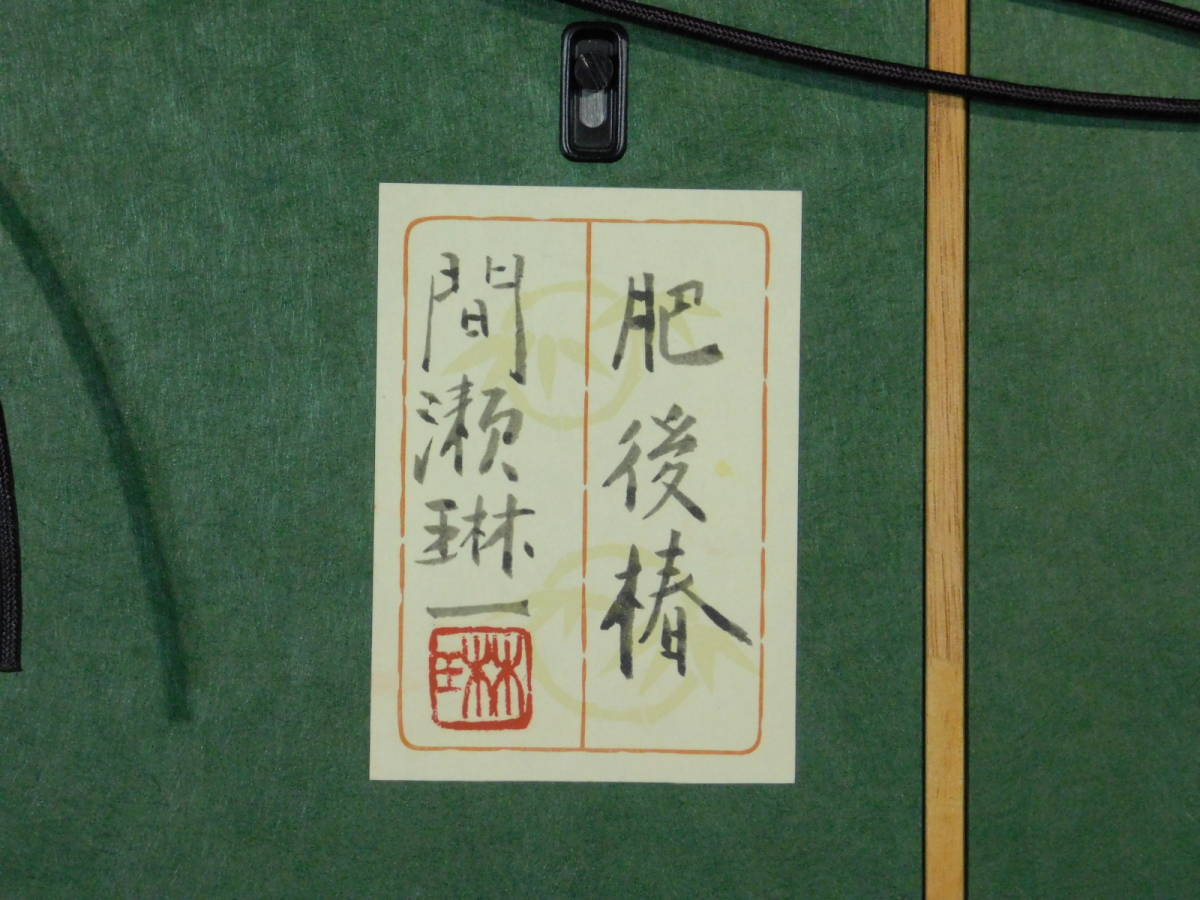 肥後椿
間瀬琳一
琳